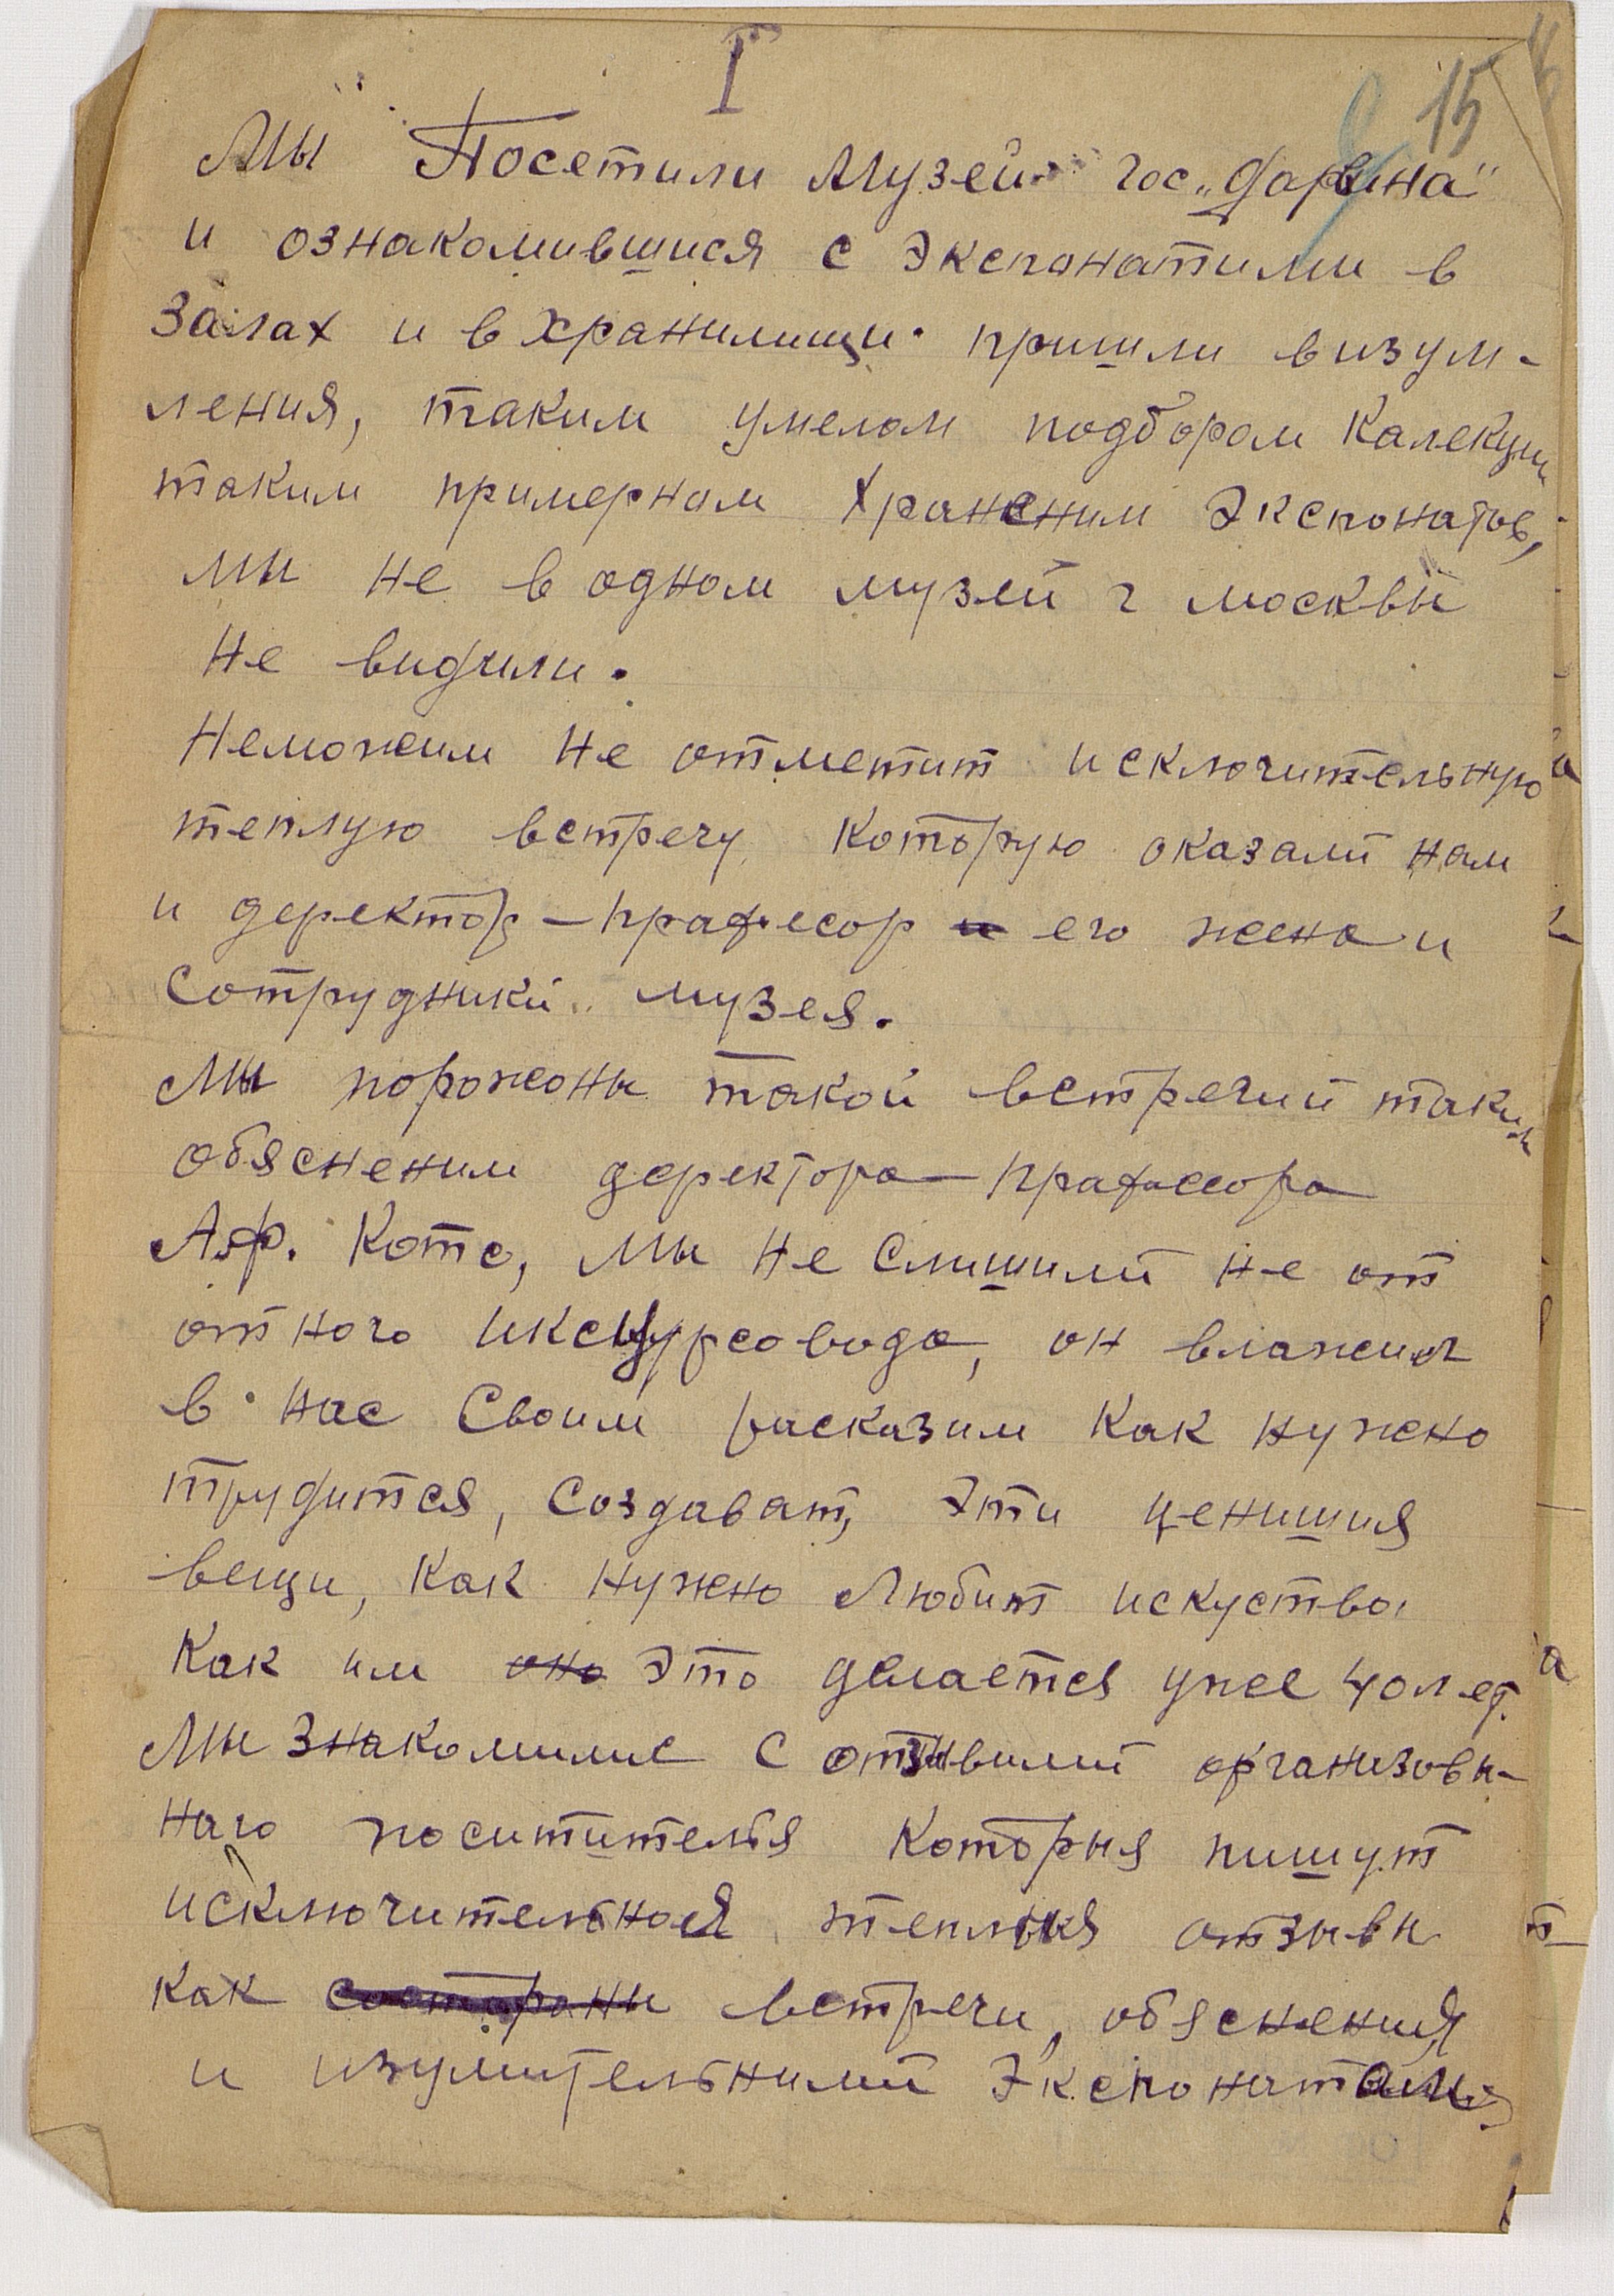 I
15
Мы Посетили Музей гос „Дарвина"
и ознакомившися с Экспонатими в
Залах и в хранилищи пришли в изум-
ления, таким умелом подбором Калекции
таким примерном Хранением Экспонатов,
мы не в одном музей г москвы
не видили.
Неможим не отметит исключительную
теплую встречу которую оказали нам
и деректор - прафесор его жена и
Сотрудники музея.
Мы поражоны такой встречий таким
обяснением деректора - прафесора
А.ф. Котс, мы не Слишили не от
отного икскурсовода, он вложил
в нас Своим расказим Как нужно
трудится, Создават, Эти ценишия
вещи, Как нужно Любит искуства
Как им оно Это делается уже 40 лет.
Мы Знакомилис С отзывими организовы-
ного поситителья Которыя пишут
исключительноя теплыя отзывы
Как встречи, обяснения
и изумительними Экспонатами